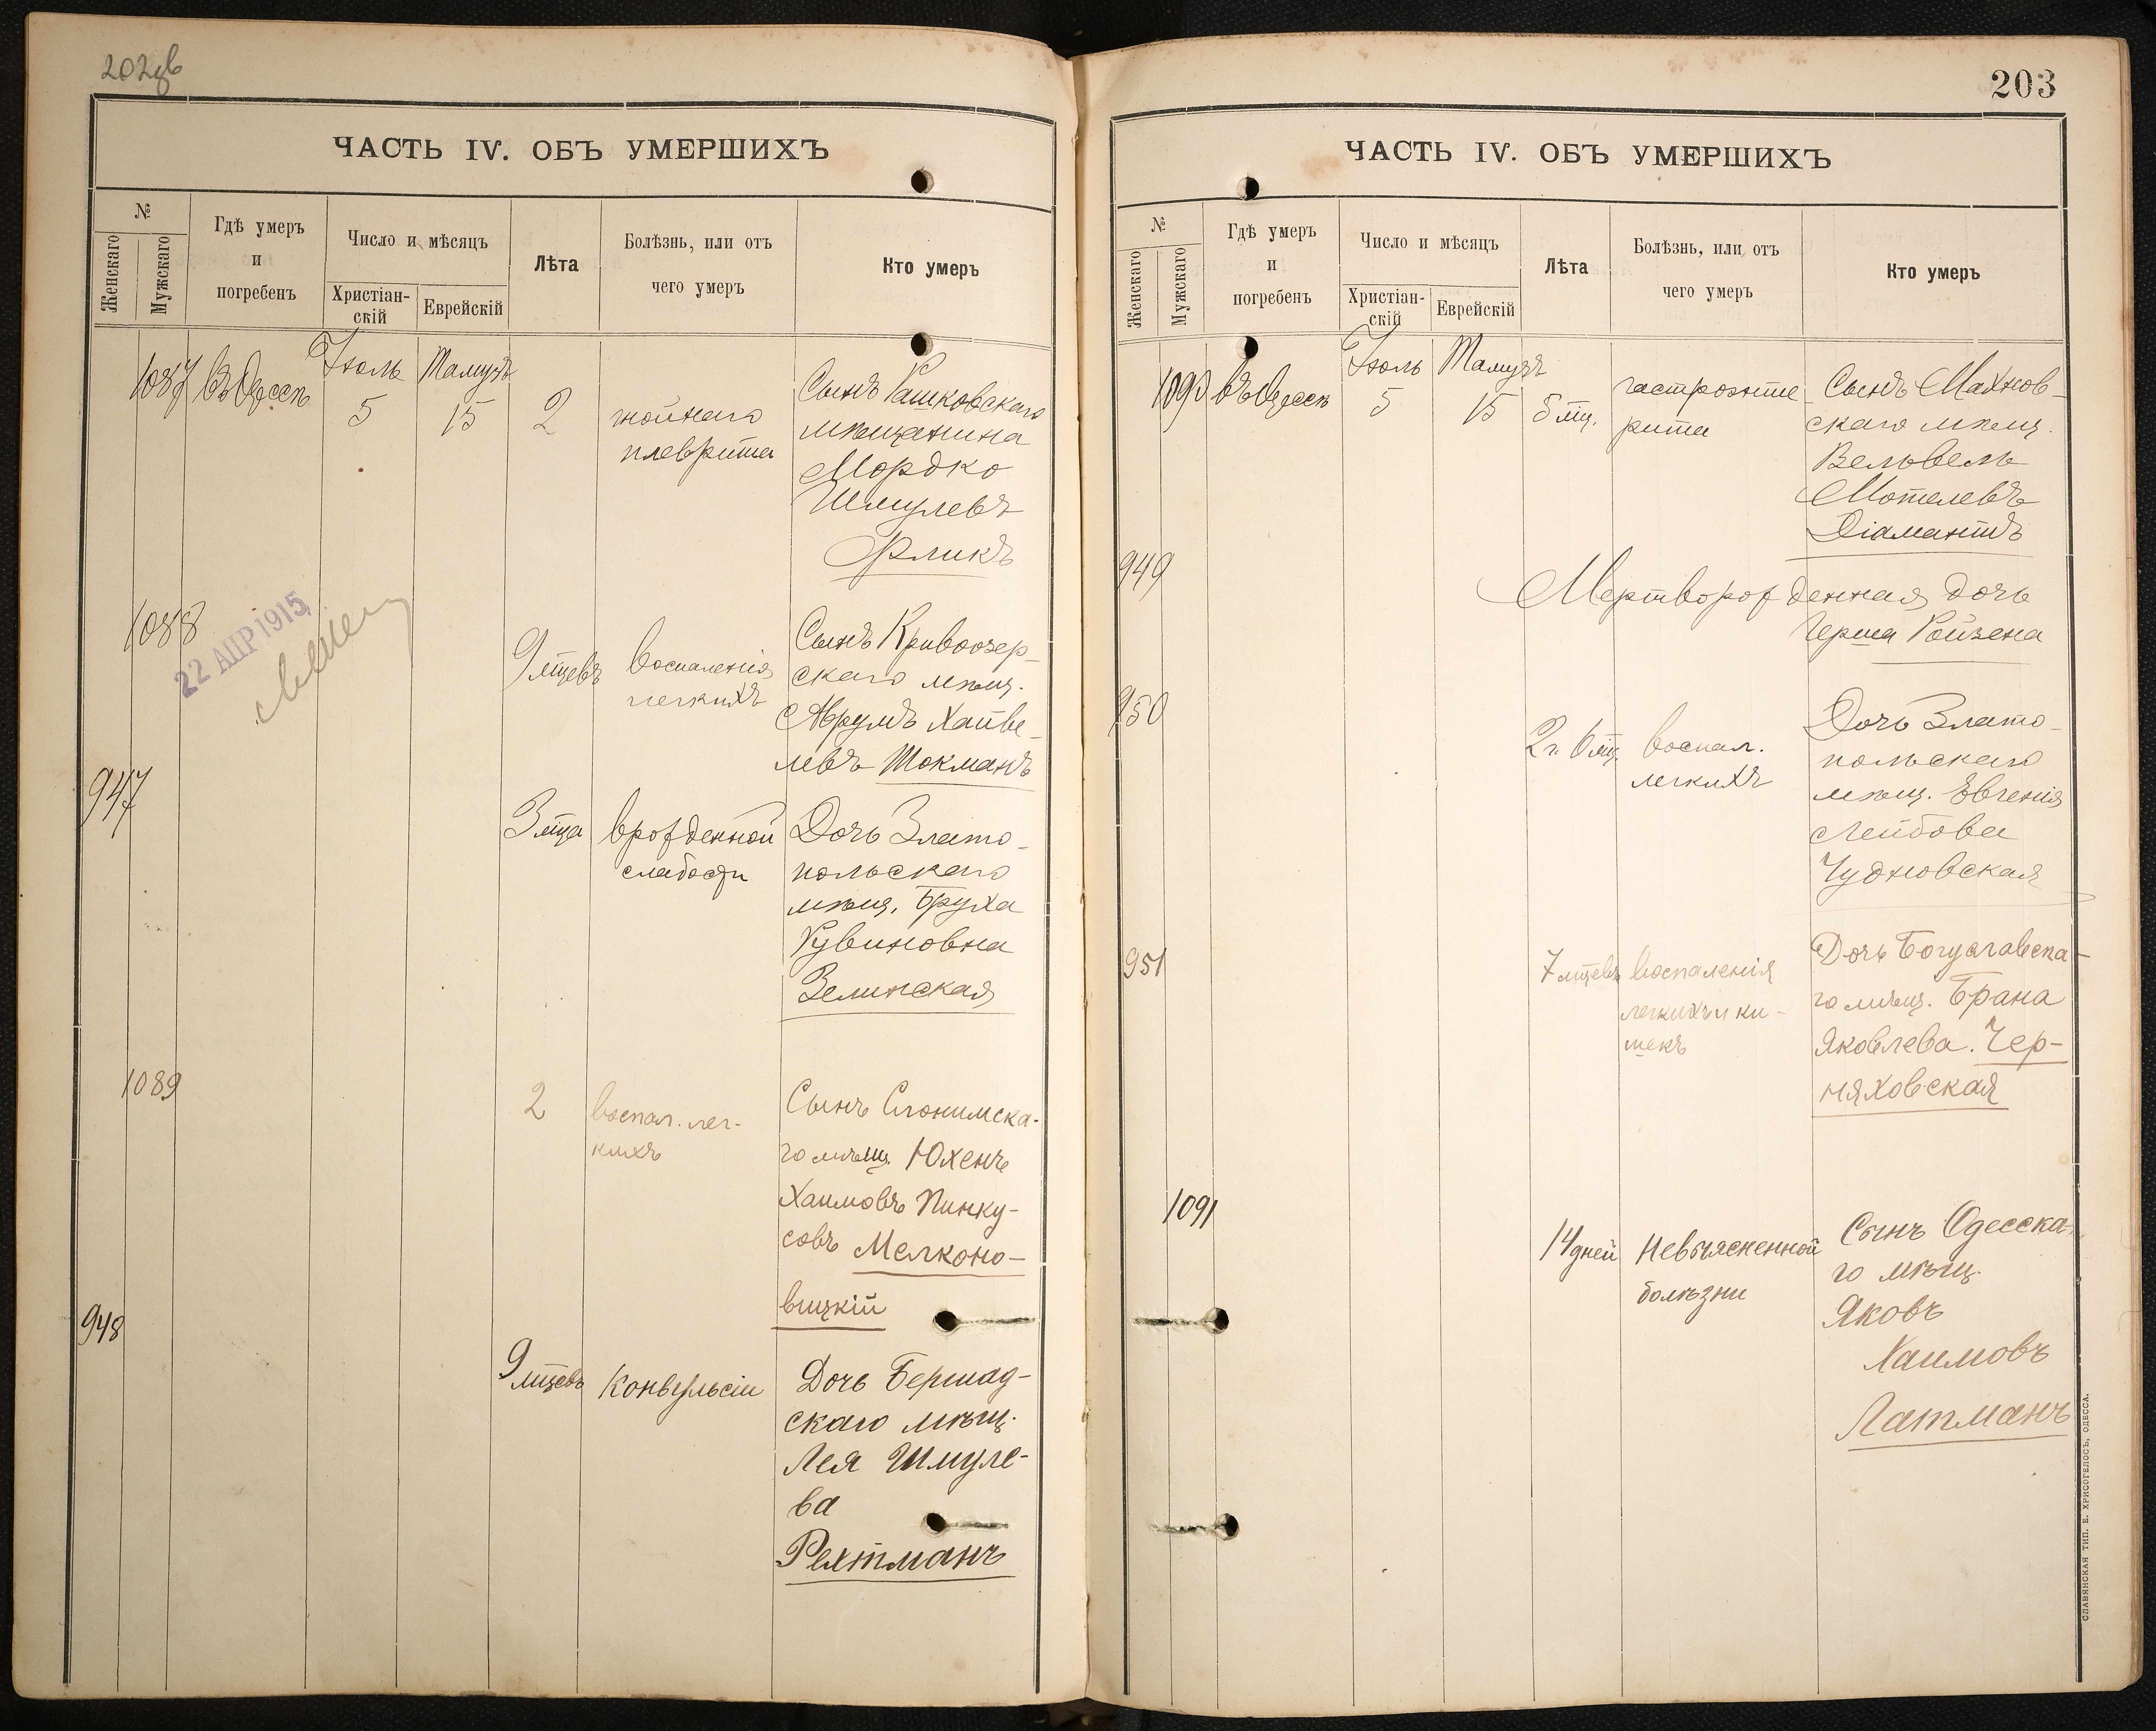 202об
ЧАСТЬ IV. ОБЪ УМЕРШИХЪ
№
Женскаго
Мужскаго
Гдѣ умеръ
и
погребенъ
Число и мѣсяцъ
Христіан-
скій
Еврейскій
Лѣта
Болѣзнь, или отъ
чего умеръ
Кто умеръ
1087
въ Одессѣ
Іюль
5
Тамузъ
15
2
гнойнаго
плеврита
Сынъ Рашковскаго
мѣщанина
Мордко
Шмулевъ
Фликъ
1088
22 АПР 1915
9 мѣсцевъ
воспаленія
легкихъ
Сынъ Кривоозер-
скаго мѣщ.
Аврумъ Хайве-
левъ Токманъ
947
3 мѣца
врожденной
слабости
Дочь Злато-
польскаго
мѣщ. Бруха
Рувиновна
Зелинская
1089
2
воспал. лег-
кихъ
Сынъ Слонимска-
го мѣщ. Юхенъ
Хаимовъ Пинку-
совъ Мелконо-
вицкій
948
9 мѣсцевъ
Конвульсіи
Дочь Бершад-
скаго мѣщ.
Лея Шмуле-
ва
Рехтманъ
203
ЧАСТЬ IV. ОБЪ УМЕРШИХЪ
№
Женскаго
Мужскаго
Гдѣ умеръ
и
погребенъ
Число и мѣсяцъ
Христіан-
скій
Еврейскій
Лѣта
Болѣзнь, или отъ
чего умеръ
Кто умеръ
1090
въ Одессѣ
Іюль
5
Тамузъ
15
5 мц.
гастроэнте
рита
Сынъ Махнов-
скаго мѣщ.
Вельвель
Мотелевъ
Діамантъ
949
Мертворожденная дочь
Герша Ройзена
950
2 г. 6 мц.
воспал.
легкихъ
Дочь Злато-
польскаго
мѣщ. Евгенія
Лейбова
Чудновская
951
7 мѣсцевъ
воспаленія
легкихъ и ки-
шекъ
Дочь Богуславска-
го мѣщ. Брана
Яковлева Чер-
няховская
1091
14 дней
Невыясненной
болѣзни
Сынъ Одесска-
го мѣщ.
Яковъ
Хаимовъ
Латманъ
СЛАВЯНСКАЯ ТИП. Е. ХРИСОГЕЛОСЪ, ОДЕССА.